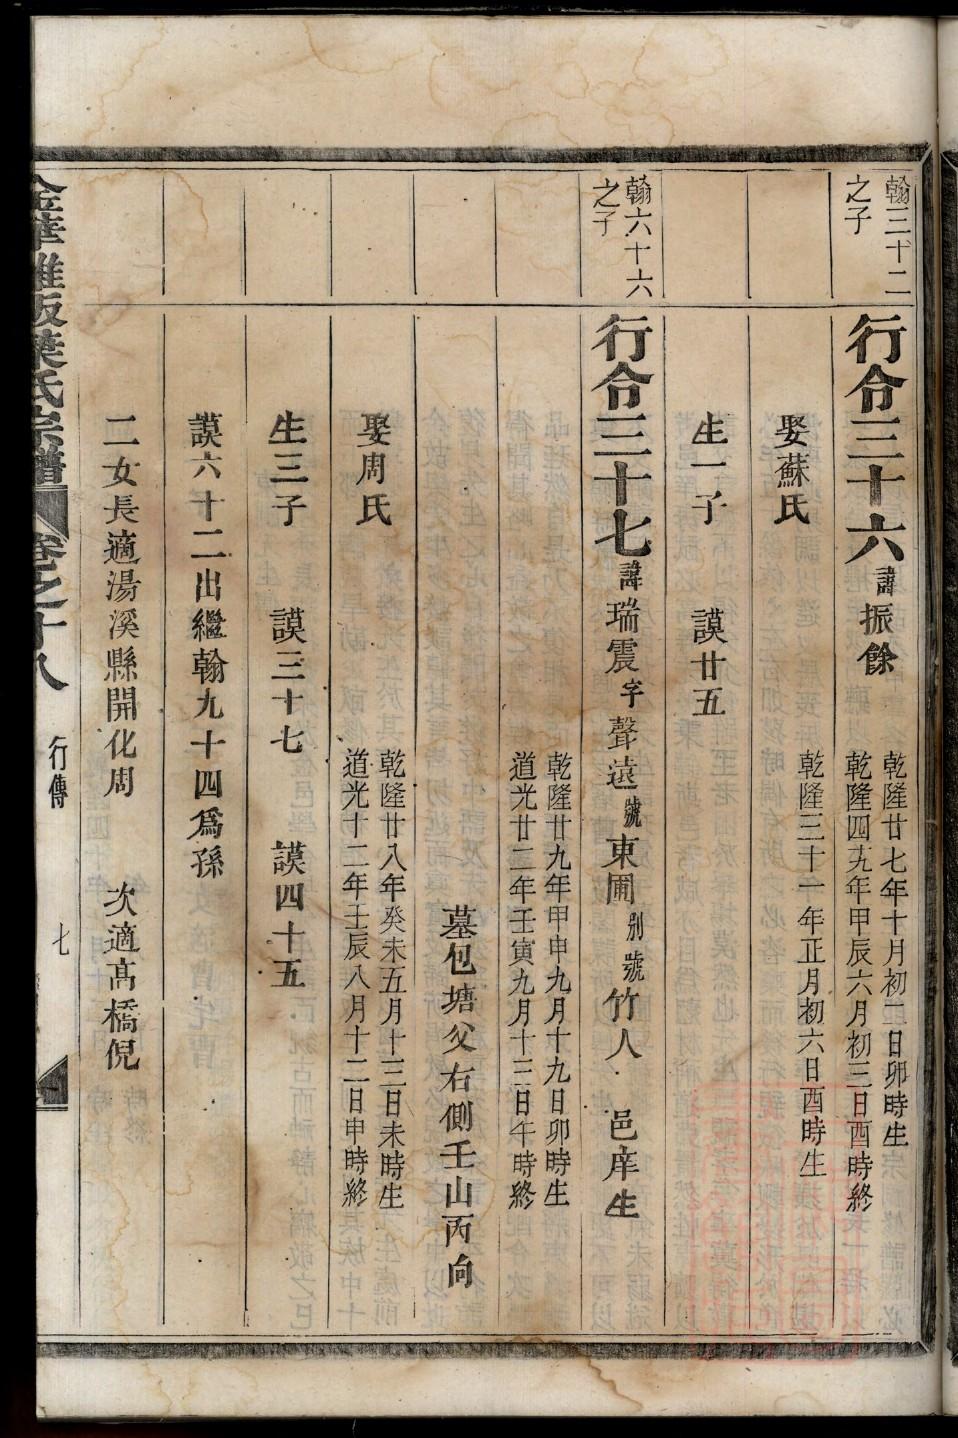 翰三十二
之子
行令三十六諱振餘
乾隆廿七年十月初二日卯時生
乾隆四九年甲辰六月初三日酉時終
娶蘇氏
乾隆三十一年正月初六日酉時生
生一子 謨廿五
翰六十六
之子
行令三十七諱瑞震字聲遠號東圃別號竹人 邑庠生
乾隆廿九年甲申九月十九日卯時生
道光廿二年壬寅九月十三日午時終
墓包塘父右側壬山丙向
娶周氏
乾隆廿八年癸未五月十三日未時生
道光十二年壬辰八月十二日申時終
生三子 謨三十七 謨四十五
謨六十二出繼翰九十四爲孫
二女長適湯溪縣開化周 次適高橋倪
金華雅畈葉氏宗譜 卷之十八 行傳 七